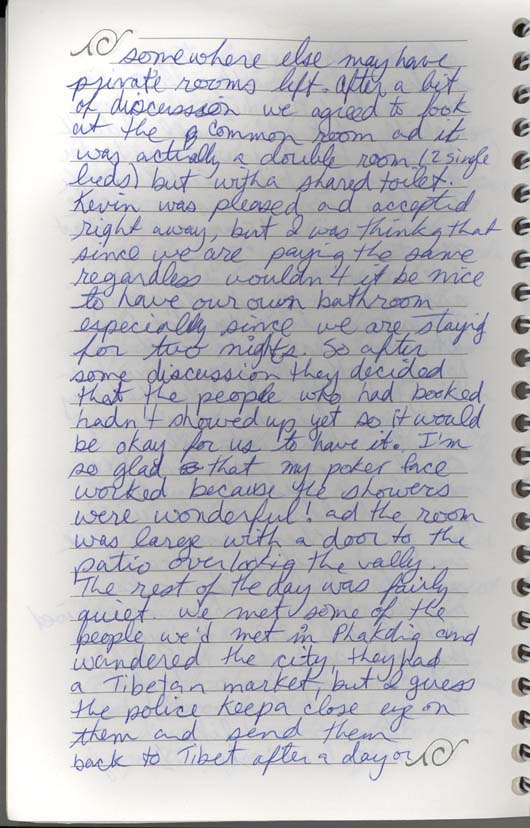 somewhere else may have
private rooms left. After a bit
of discussion we agreed to look
at the common room ad it
was actually a double room (2 single
beds) but with a shared toilet.
Kevin was pleased ad accepted
right away, but I was thinkg that
since we are paying the same
regardless wouldn't it be nice
to have our own bathroom
especially since we are staying
for two nights. So after
some discussion they decided
that the people who had booked
hadn't showed up yet so it would
be okay for us to have it. I'm
so glad that my poker face
worked because the showers
were wonderful! ad the room
was large with a door to the
patio overlookig the vally.
The rest of the day was fairly
quiet. We met some of the
people we'd met in Phakdig and
wandered the city, they had
a Tibetan market, but I guess
the police keep a close eye on
them and send them
back to Tibet after a day or